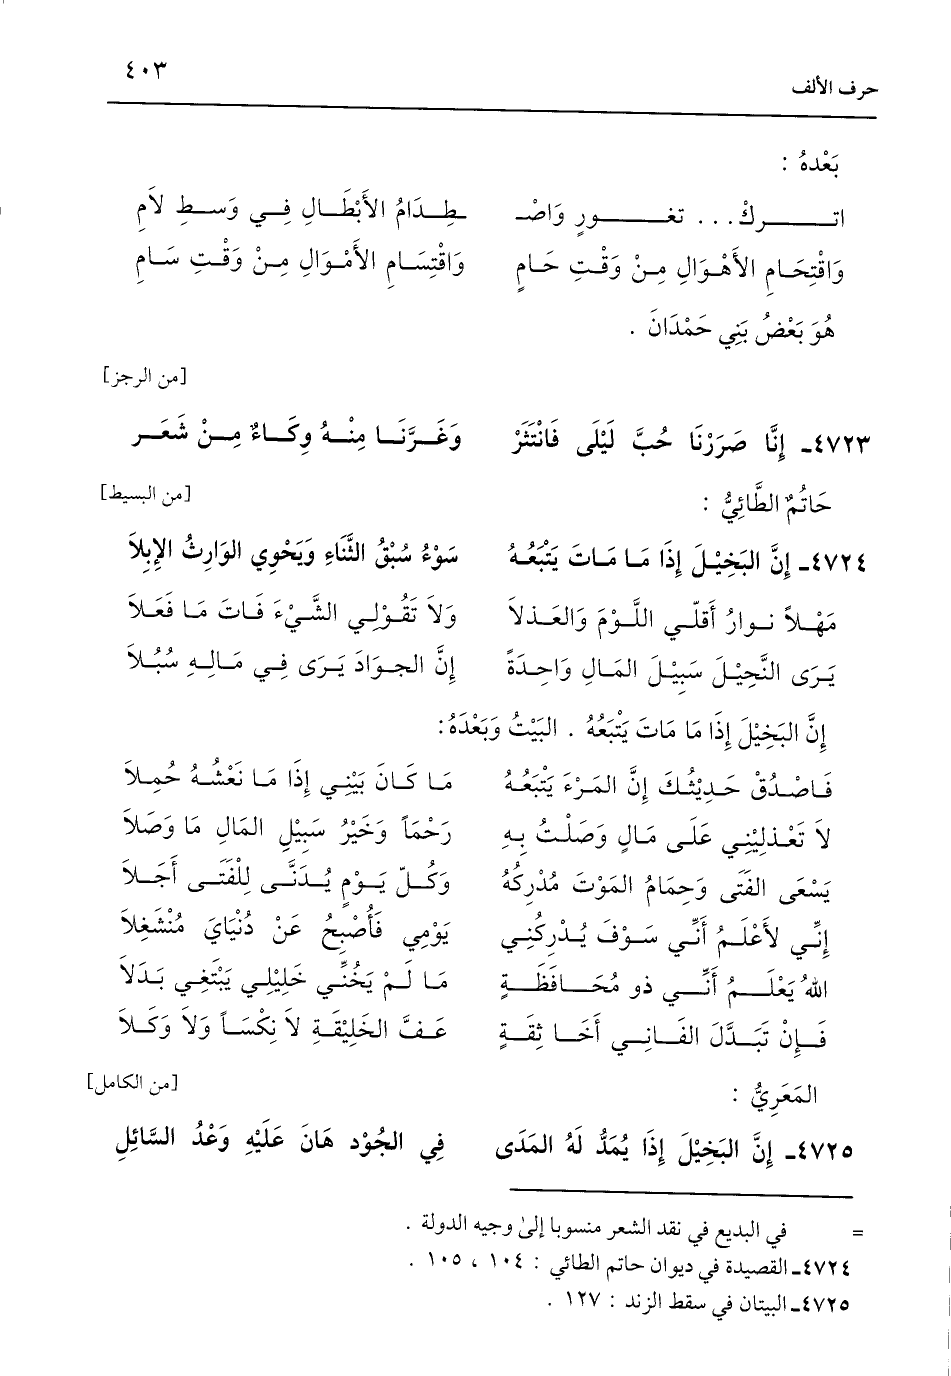 حرف الألف ٤٠٣
بَعْدهُ :
اتــركْ... تغــورٍ وَاصْـ ـطِدَامُ الأَبْطَالِ فِي وَسطِ لاَمِ
وَاقْتِحَامِ الأَهْوَالِ مِنْ وَقْتِ حَامٍ وَاقْتِسَامِ الأَمْوَالِ مِنْ وَقْتِ سَامِ
هُوَ بَعْضُ بَنِي حَمْدَانَ .
[من الرجز]
٤٧٢٣ـ إِنَّا صَرَرْنَا حُبَّ لَيْلَى فَانْتَثَرْ وَغَرَّنَا مِنْهُ وِكَاءٌ مِنْ شَعَر
حَاتُمٌ الطَّائِيُّ : [من البسيط]
٤٧٢٤ـ إِنَّ البَخِيْلَ إِذَا مَا مَاتَ يَتْبَعُهُ سَوْءُ سُبْقُ الثَّنَاءِ وَيَحْوِي الوَارِثُ الإِبِلاَ
مَهْلاً نوارُ أَقلّي اللَّوْمَ وَالعَذلاَ وَلاَ تَقُوْلِي الشَّيْءَ فَاتَ مَا فَعَلاَ
يَرَى النَّجِيْلَ سَبِيْلَ المَالِ وَاحِدَةً إِنَّ الجوَادَ يَرَى فِي مَالِهِ سُبُلاَ
إِنَّ البَخِيْلَ إِذَا مَا مَاتَ يَتْبَعُهُ . البَيْتُ وَبَعْدَهُ:
فَاصْدُقْ حَدِيْثُكَ إِنَّ المَرْءَ يَتْبَعُهُ مَا كَانَ بَيْنِي إِذَا مَا نَعْشهُ حُمِلاَ
لاَ تَعْذلِيْنِي عَلَى مَالٍ وَصَلْتُ بِهِ رَحْماً وَخَيْرُ سَبِيْلِ المَالِ مَا وَصَلاَ
يَسْعَى الفَتَى وَحِمَامُ المَوْتَ مُدْرِكهُ وَكُلّ يَوْمٍ يُدَنَّى لِلْفَتَى أَجَلاَ
إِنِّي لأَعْلَمُ أَنِّي سَوْفَ يُدْرِكنِي يَوْمِي فَأُصْبِحُ عَنْ دُنْيَايَ مُنْشَغِلاَ
اللهُ يَعْلَمُ أَنِّي ذو مُحَافَظَةٍ مَا لَمْ يَخُنِّي خَلِيْلِي يَبْتَغِي بَدَلاَ
فَإِنْ تَبَدَّلَ الفَانِي أَخَا ثِقَةٍ عَفَّ الخَلِيْقَةِ لاَ نِكْسَاً وَلاَ وَكَلاَ
المَعَرِيُّ : [من الكامل]
٤٧٢٥ـ إِنَّ البَخِيْلَ إِذَا يُمَدُّ لَهُ المَدَى فِي الجُوْدِ هَانَ عَلَيْهِ وَعْدُ السَّائِلِ
= في البديع في نقد الشعر منسوبا إلىٰ وجيه الدولة .
٤٧٢٤ـ القصيدة في ديوان حاتم الطائي : ١٠٤ ، ١٠٥ .
٤٧٢٥ـ البيتان في سقط الزند : ١٢٧ .